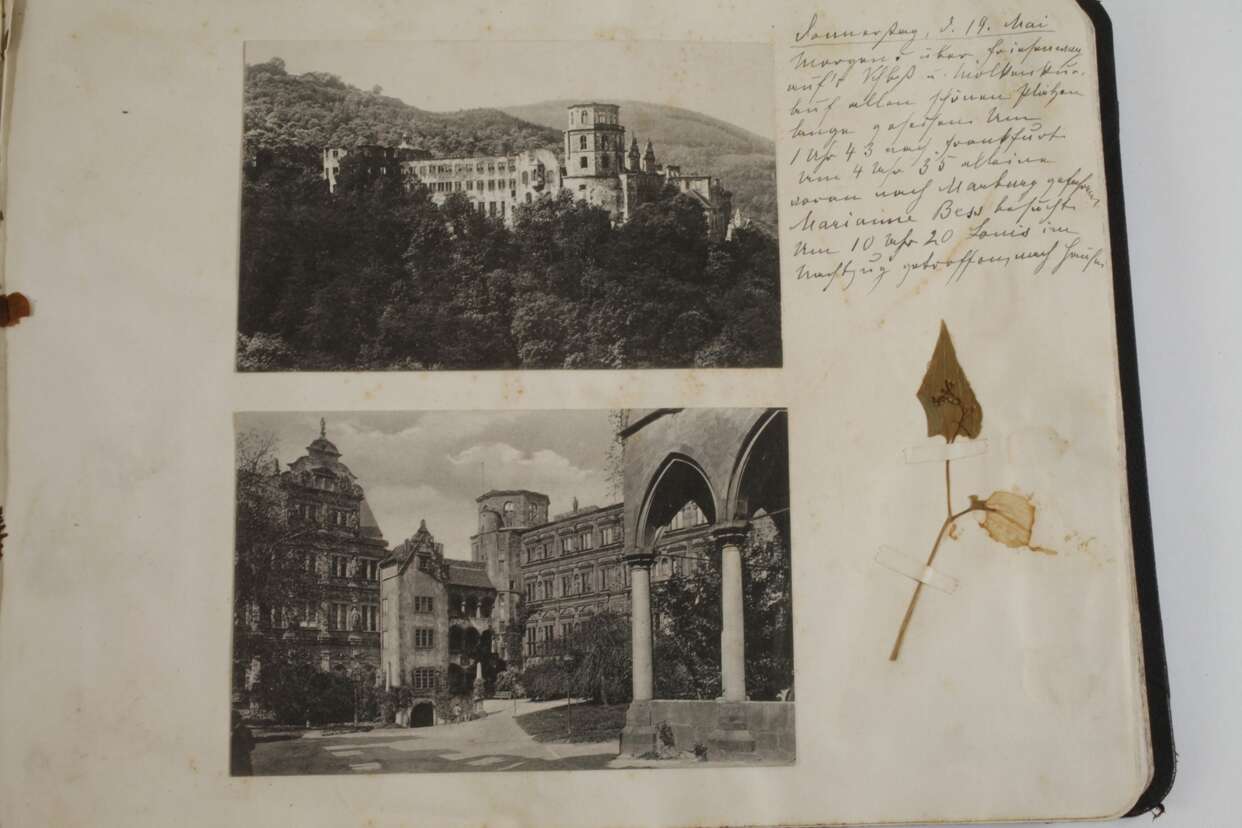 Donnerstag, d. 19. Mai
Morgens über Friesenweg
auf's Schloß u. Molkenkur.
auf allen schönen Plätzen
lange gesessen. Um
1 Uhr 43 nach Frankfurt
Um 4 Uhr 35 alleine
voran nach Marburg gefahren
Marianne Bess besucht.
Um 10 Uhr 20 Louis im
Nachtzug getroffen, nach Hause